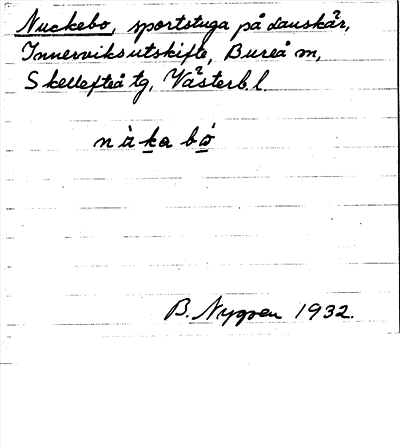 Nuckebo, sportstuga på dauskär,
Innerviksutskifte, Bureå m,
Skellefteå tg, Västerb. l.
nà̀ka bó̀
B. Nygren 1932.